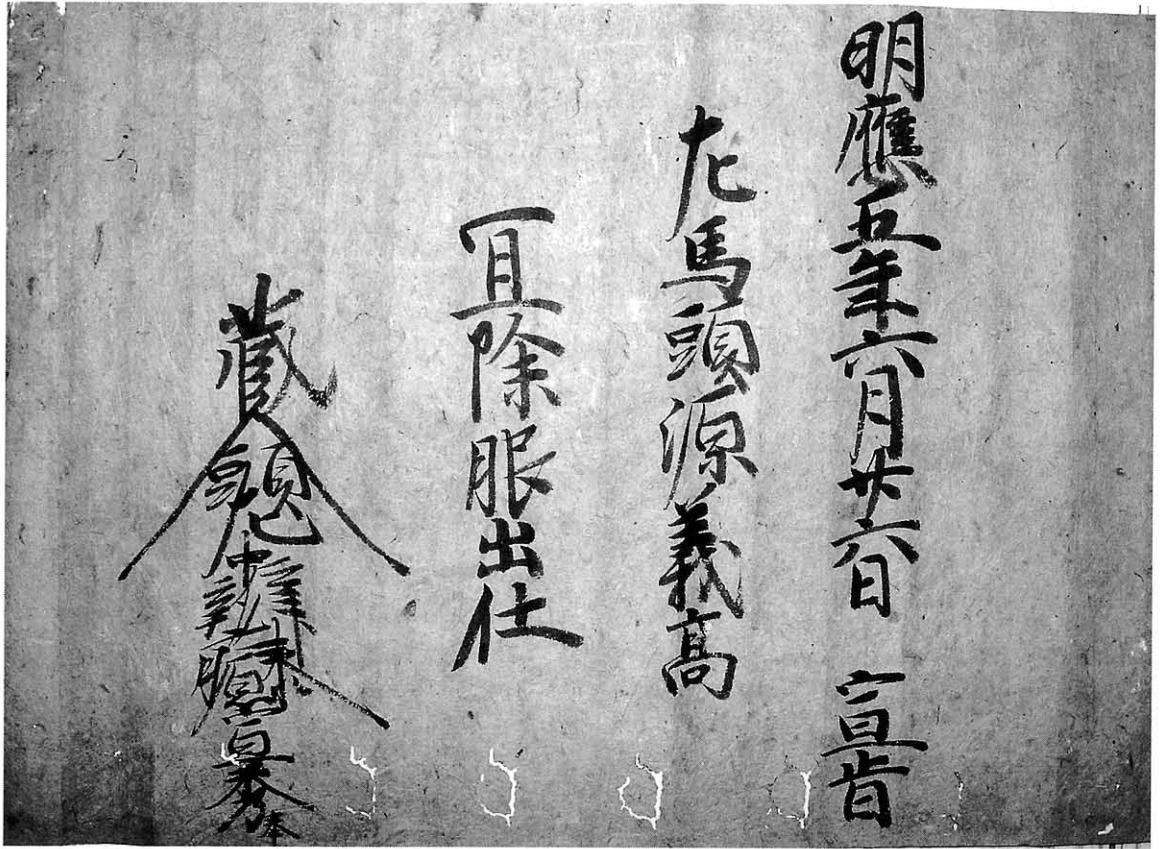 明應五年六月廿六日 宣旨
左馬頭源義高
宜除服出仕
藏人頭左中辨藤原宣秀奉